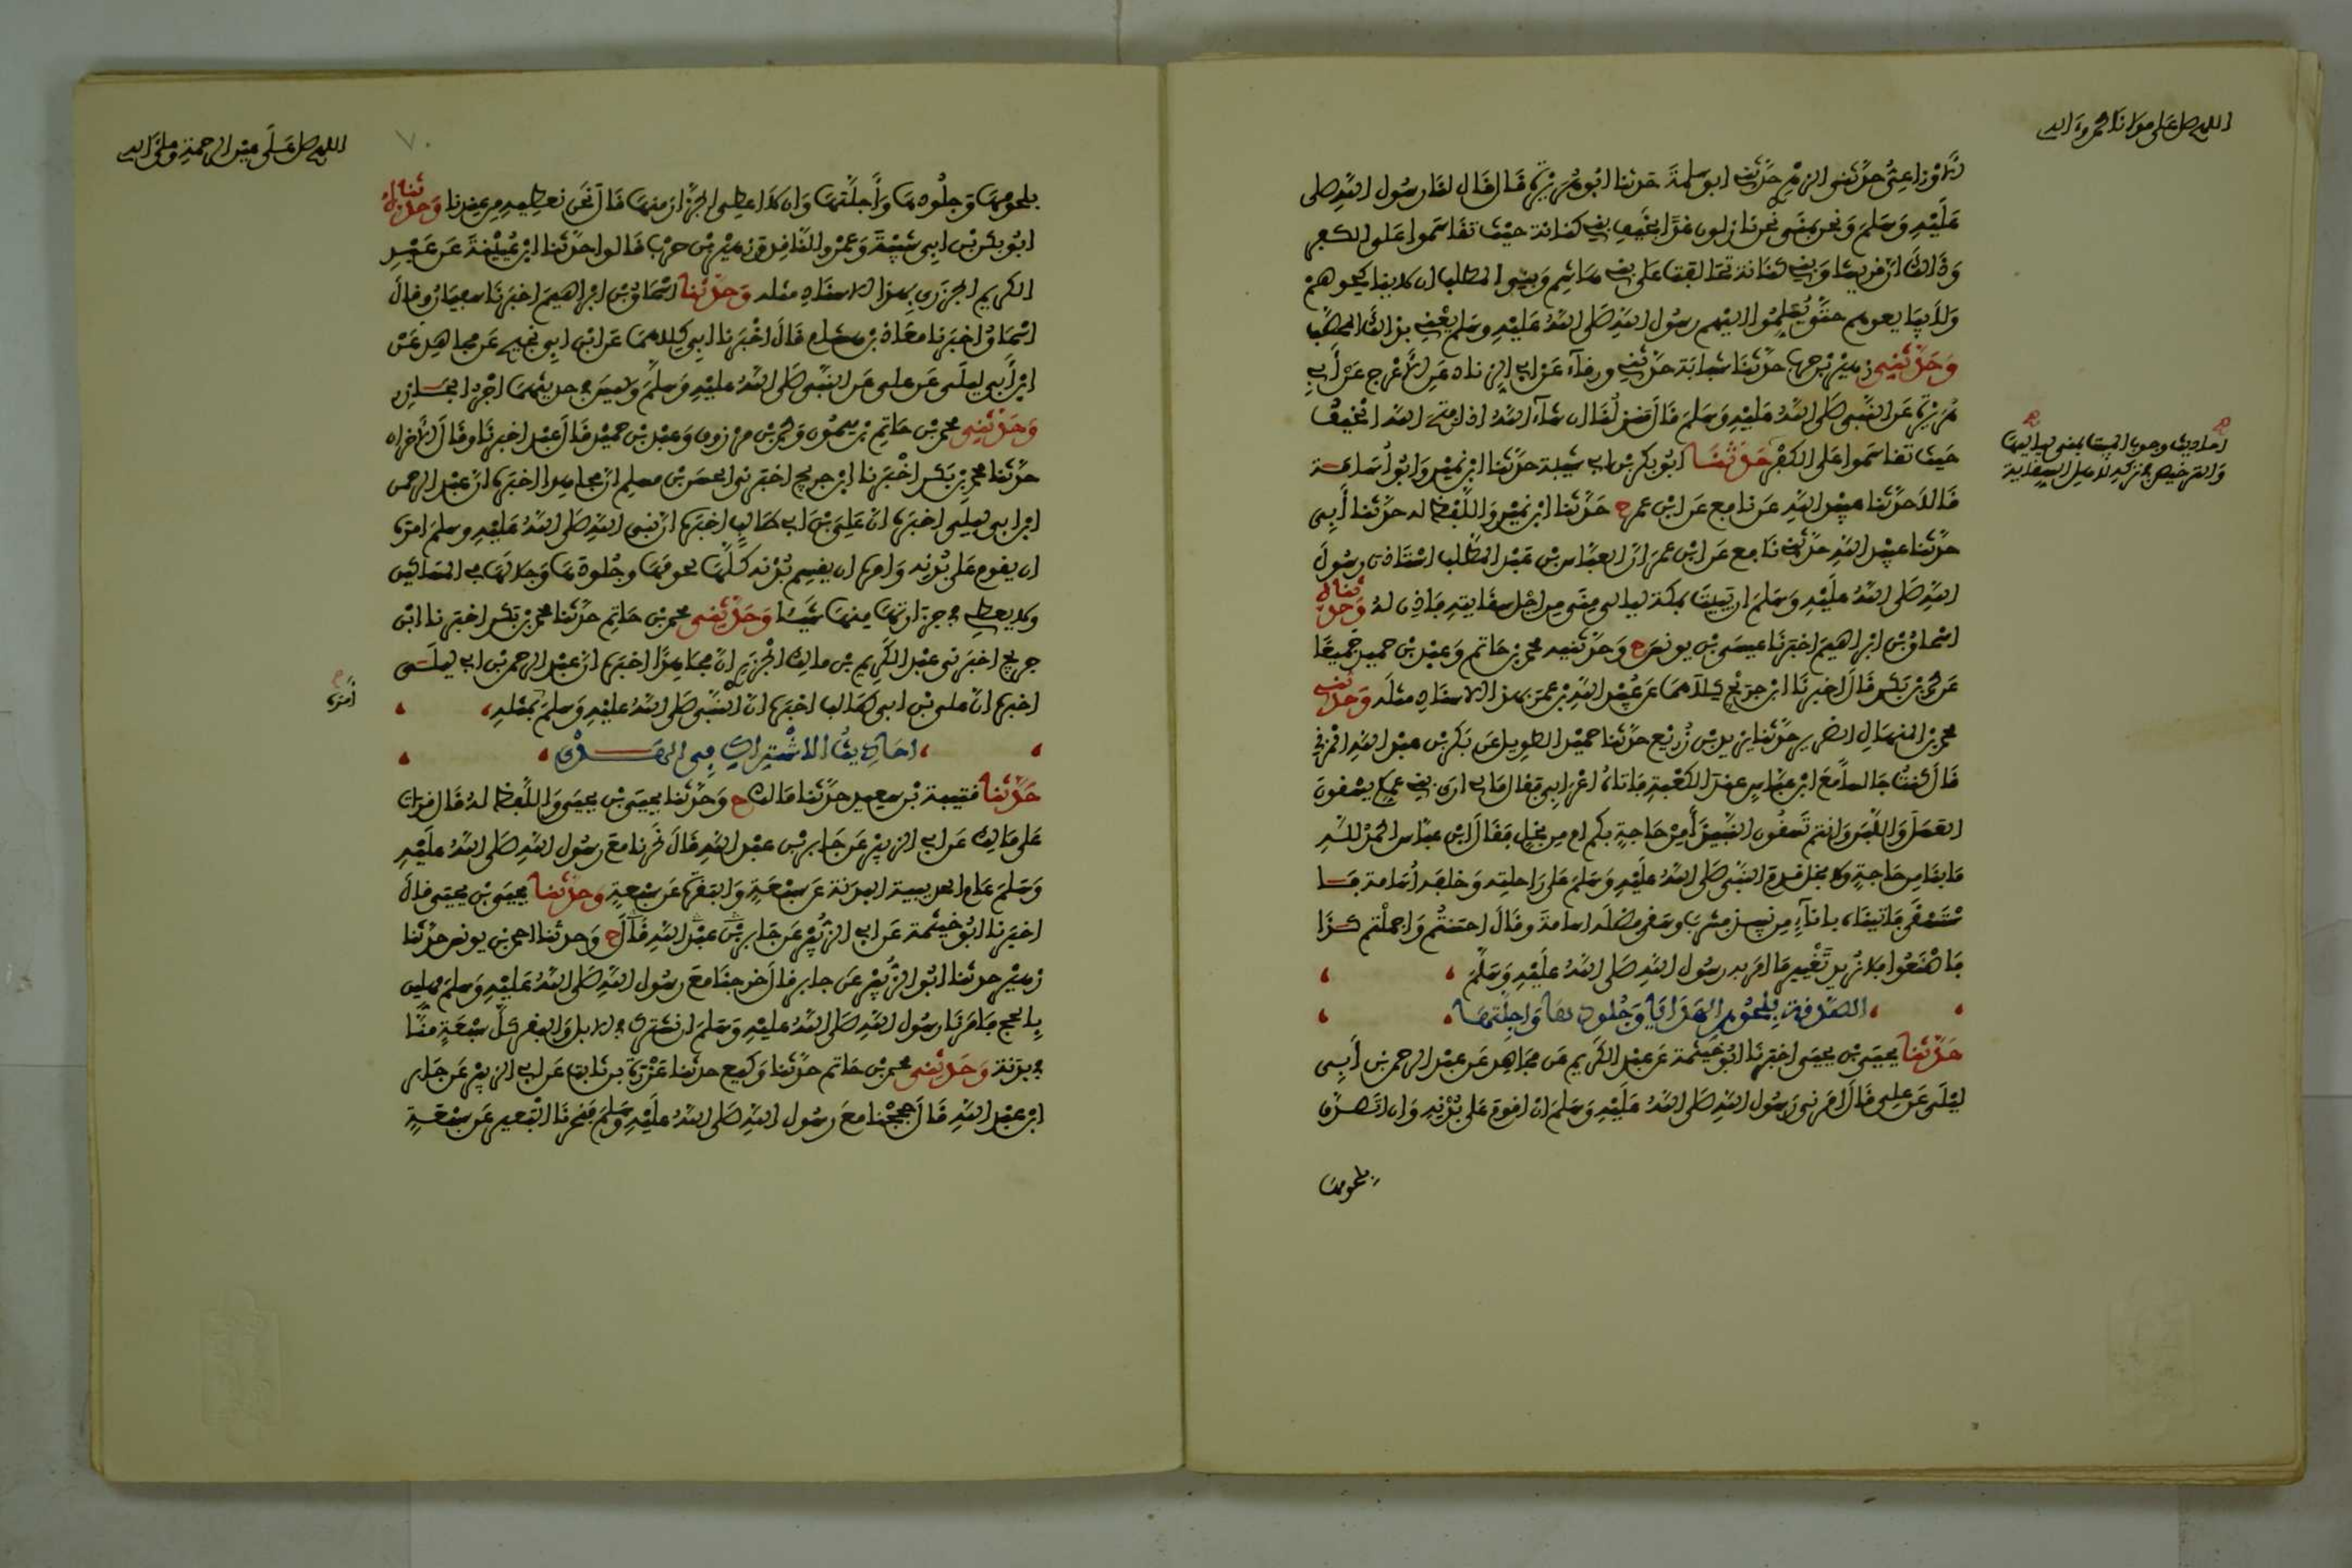 اللهم صل على مولانا محمد وءاله
الاوزاعي حدثني الزهري حدثني ابو سلمة حدثنا ابو هريرة قال قال لنا رسول الله صلى
عليه وسلم ونحن بمنى نحن نازلون غدا بخيف بني كنانة حيث تقاسموا على الكفر
وذالك ان قريشا وبني كنانة تحالفت على بني هاشم وبني المطلب ان لا يناكحوهم
ولا يبايعوهم حتى يسلموا اليهم رسول الله صلى الله عليه وسلم يعني بذالك المحصب
وحدثني زهير بن حرب حدثنا شبابة حدثني ورقاء عن ابي الزناد عن الاعرج عن أبي
هريرة عن النبي صلى الله عليه وسلم قال منزلنا ان شاء الله اذا فتح الله الخيف
حيث تقاسموا على الكفر حدثنا ابو بكر بن ابي شيبة حدثنا ابن نمير وابو أسامة
قالا حدثنا عبيد الله عن نافع عن ابن عمر ح حدثنا ابن نمير واللفظ له حدثنا أبي
حدثنا عبيد الله حدثني نافع عن ابن عمر ان العباس بن عبد المطلب استاذن رسول
الله صلى الله عليه وسلم ان يبيت بمكة ليالي منى من اجل سقايته فاذن له وحدثناه
اسحاق بن ابراهيم اخبرنا عيسى بن يونس ح وحدثنيه محمد بن حاتم وعبد بن حميد جميعا
عن محمد بن بكر قال اخبرنا ابن جريج كلاهما عن عبيد الله بن عمر بهذا الاسناد مثله وحدثني
محمد بن المنهال الضرير حدثنا يزيد بن زريع حدثنا حميد الطويل عن بكر بن عبد الله المزني
قال كنت جالسا مع ابن عباس عند الكعبة فاتاه اعرابي فقال ما لي ارى بني عمكم يسقون
العسل واللبن وانتم تسقون النبيذ أمن حاجة بكم ام من بخل فقال ابن عباس الحمد لله
ما بنا من حاجة ولا بخل قدم النبي صلى الله عليه وسلم على راحلته وخلفه أسامة فاستسقى
فاتيناه باناء من نبيذ فشرب وسقى فضله اسامة وقال احسنتم واجملتم كذا
فاصنعوا فلا نريد تغيير ما امر به رسول الله صلى الله عليه وسلم
الصدقة بلحوم الهدايا وجلودها واجلتها
حدثنا يحيى بن يحيى اخبرنا ابو خيثمة عن عبد الكريم عن مجاهد عن عبد الرحمن بن أبي
ليلى عن علي قال امرني رسول الله صلى الله عليه وسلم ان اقوم على بدنه وان اتصدق
بلحومها
احاديث وجوب المبيت بمنى لياليها
والترخيص في تركه لاهل السقاية
اللهم صل على عين الرحمة وعلى ءاله
٧٠
بلحومها وجلودها وأجلتها وان لا اعطي الجزار منها قال نحن نعطيه من عندنا وحدثناه
ابو بكر بن ابي شيبة وعمرو الناقد وزهير بن حرب قالوا حدثنا ابن عيينة عن عبد
الكريم الجزري بهذا الاسناد مثله وحدثنا اسحاق بن ابراهيم اخبرنا سفيان وقال
اسحاق اخبرنا معاذ بن هشام قال اخبرنا ابي كلاهما عن ابن ابي نجيح عن مجاهد عن
ابن أبي ليلى عن علي عن النبي صلى الله عليه وسلم وليس في حديثهما اجر الجازر
وحدثني محمد بن حاتم بن ميمون ومحمد بن مرزوق وعبد بن حميد قال عبد اخبرنا وقال الاخران
حدثنا محمد بن بكر اخبرنا ابن جريج اخبرني الحسن بن مسلم ان مجاهدا اخبره ان عبد الرحمن
ابن ابي ليلى اخبره ان علي بن ابي طالب اخبره ان نبي الله صلى الله عليه وسلم امره
ان يقوم على بدنه وامره ان يقسم بدنه كلها لحومها وجلودها وجلالها في المساكين
ولا يعطي في جزارتها منها شيئا وحدثني محمد بن حاتم حدثنا محمد بن بكر اخبرنا ابن
جريج اخبرني عبد الكريم بن مالك الجزري ان مجاهدا اخبره ان عبد الرحمن بن ابي ليلى
اخبره ان علي بن ابي طالب اخبره ان النبي صلى الله عليه وسلم بمثله
أمره
احاديث الاشتراك في الهدي
حدثنا قتيبة بن سعيد حدثنا مالك ح وحدثنا يحيى بن يحيى واللفظ له قال قرات
على مالك عن ابي الزبير عن جابر بن عبد الله قال نحرنا مع رسول الله صلى الله عليه
وسلم عام الحديبية البدنة عن سبعة والبقرة عن سبعة وحدثنا يحيى بن يحيى قال
اخبرنا ابو خيثمة عن ابي الزبير عن جابر بن عبد الله قال ح وحدثنا احمد بن يونس حدثنا
زهير حدثنا ابو الزبير عن جابر قال خرجنا مع رسول الله صلى الله عليه وسلم مهلين
بالحج فامرنا رسول الله صلى الله عليه وسلم ان نشترك في الابل والبقر كل سبعة منا
في بدنة وحدثني محمد بن حاتم حدثنا وكيع حدثنا عزرة بن ثابت عن ابي الزبير عن جابر
ابن عبد الله قال حججنا مع رسول الله صلى الله عليه وسلم فنحرنا البعير عن سبعة